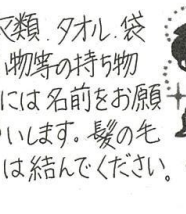 マ類.タオル.袋
物等の持ち物
には名前をお願
いします。髪の毛
は結んでください。